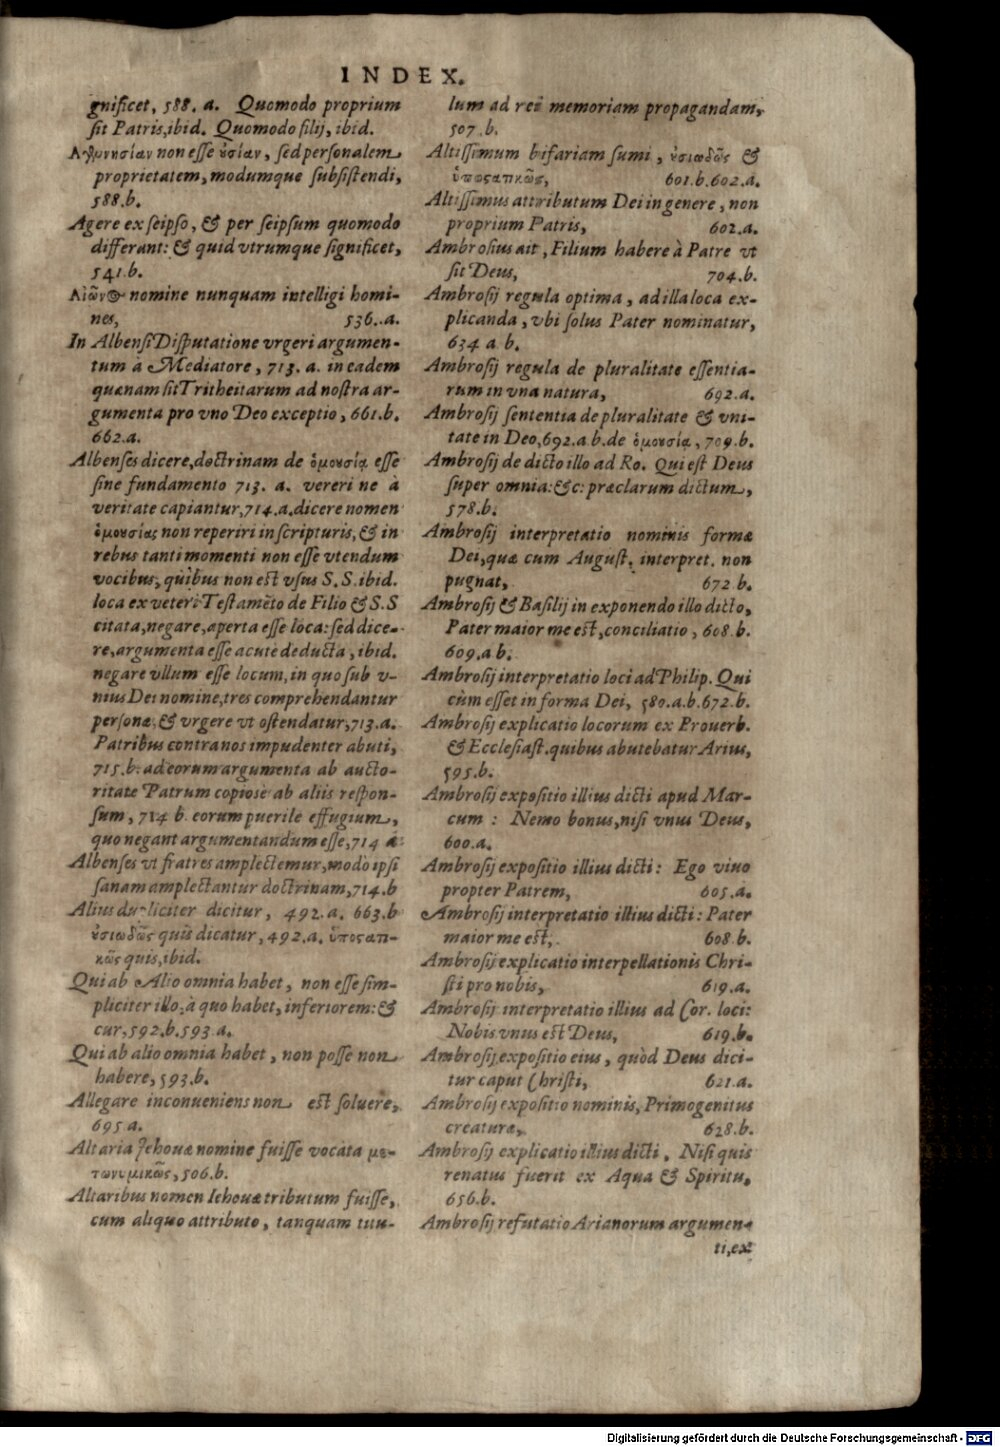 INDEX.
gnificet, 588. a. Quomodo proprium
sit Patris, ibid. Quomodo filij, ibid.
Ἀγεννησίαν non esse οὐσίαν, sed personalem
proprietatem, modumque subsistendi,
588.b.
Agere ex seipso, & per seipsum quomodo
differant: & quid vtrumque significet,
541.b.
Αἰῶνος nomine nunquam intelligi homi-
nes, 536..a.
In Albensi Disputatione vrgeri argumen-
tum à Mediatore, 713. a. in eadem
quænam sit Tritheitarum ad nostra ar-
gumenta pro vno Deo exceptio, 661.b.
662.a.
Albenses dicere, doctrinam de ὁμουσίᾳ esse
sine fundamento 713. a. vereri ne à
veritate capiantur, 714.a. dicere nomen
ὁμουσίας non reperiri in scripturis, & in
rebus tanti momenti non esse vtendum
vocibus, quibus non est vsus S.S. ibid.
loca ex veteri Testamẽto de Filio & S.S
citata, negare, aperta esse loca: sed dice-
re, argumenta esse acutè deducta, ibid.
negare vllum esse locum, in quo sub v-
nius Dei nomine, tres comprehendantur
personæ, & vrgere vt ostendatur, 713.a.
Patribus contra nos impudenter abuti,
715.b. ad eorum argumenta ab aucto-
ritate Patrum copiosè ab aliis respon-
sum, 714 b. eorum puerile effugium,
quo negant argumentandum esse, 714 a
Albenses vt fratres amplectemur, modò ipsi
sanam amplectantur doctrinam, 714.b
Alius dupliciter dicitur, 492.a. 663.b
οὐσιωδῶς quis dicatur, 492.a. ὑποςατι-
κῶς quis, ibid.
Qui ab Alio omnia habet, non esse sim-
pliciter illo, à quo habet, inferiorem: &
cur, 592.b. 593 a.
Qui ab alio omnia habet, non posse non
habere, 593.b.
Allegare inconueniens non est soluere,
695 a.
Altaria Jehouæ nomine fuisse vocata με-
τωνυμικῶς, 506.b.
Altaribus nomen Iehouæ tributum fuisse,
cum aliquo attributo, tanquam titu-
lum ad rei memoriam propagandam,
507.b.
Altissimum bifariam sumi, οὐσιωδῶς &
ὑποςατικῶς, 601.b.602.a.
Altissimus attributum Dei in genere, non
proprium Patris, 602.a.
Ambrosius ait, Filium habere à Patre vt
sit Deus, 704.b.
Ambrosij regula optima, ad illa loca ex-
plicanda, vbi solus Pater nominatur,
634 a b.
Ambrosij regula de pluralitate essentia-
rum in vna natura, 692.a.
Ambrosij sententia de pluralitate & vni-
tate in Deo, 692.a b. de ὁμουσίᾳ, 709.b.
Ambrosij de dicto illo ad Ro. Qui est Deus
super omnia: &c: præclarum dictum,
578.b.
Ambrosij interpretatio nominis formæ
Dei, quæ cum August. interpret. non
pugnat, 672 b.
Ambrosij & Basilij in exponendo illo dicto,
Pater maior me est, conciliatio, 608.b.
609.a b.
Ambrosij interpretatio loci ad Philip. Qui
cùm esset in forma Dei, 580.a.b.672.b.
Ambrosij explicatio locorum ex Prouerb.
& Ecclesiast. quibus abutebatur Arius,
595.b.
Ambrosij expositio illius dicti apud Mar-
cum : Nemo bonus, nisi vnus Deus,
600.a.
Ambrosij expositio illius dicti: Ego viuo
propter Patrem, 605.a.
Ambrosij interpretatio illius dicti: Pater
maior me est, 608.b.
Ambrosij explicatio interpellationis Chri-
sti pro nobis, 619.a.
Ambrosij interpretatio illius ad Cor. loci:
Nobis vnus est Deus, 619.b.
Ambrosij expositio eius, quòd Deus dici-
tur caput Christi, 621.a.
Ambrosij expositio nominis, Primogenitus
creaturæ, 628.b.
Ambrosij explicatio illius dicti, Nisi quis
renatus fuerit ex Aqua & Spiritu,
656.b.
Ambrosij refutatio Arianorum argumen-
ti, ex
Digitalisierung gefördert durch die Deutsche Forschungsgemeinschaft - DFG